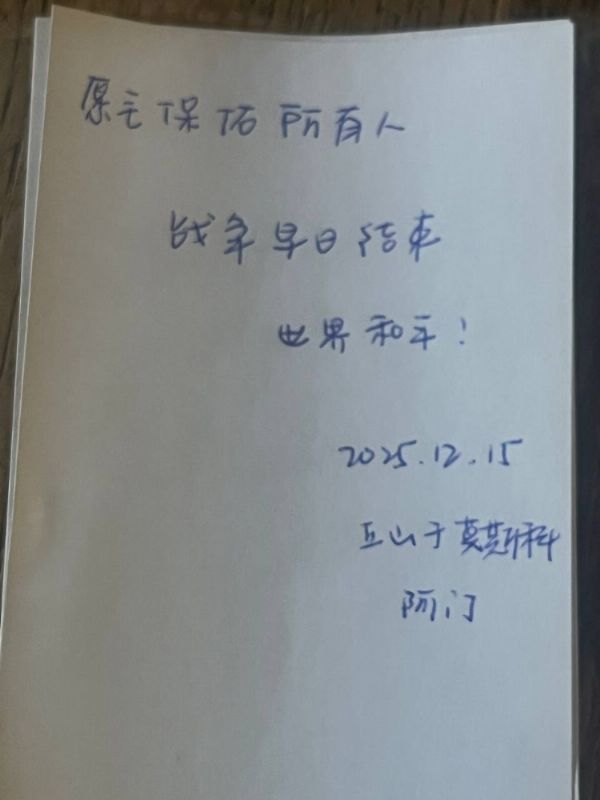 愿主保佑所有人
战争早日结束
世界和平!
2025.12.15
丘山于莫斯科
阿门